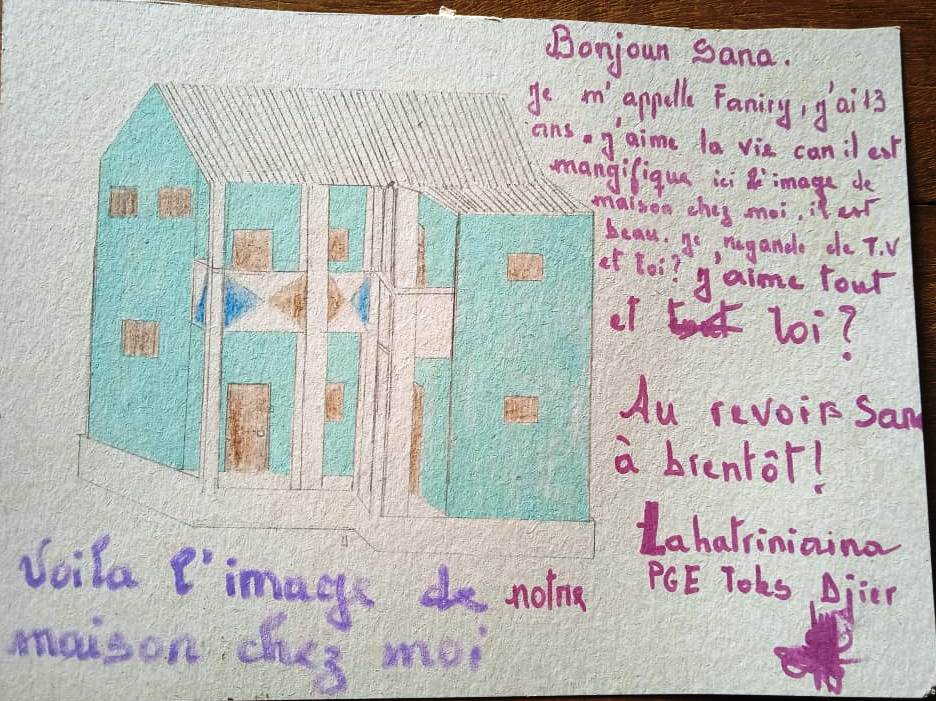 Bonjour Sana.
Je m'appelle Faniry, j'ai 13
ans. j'aime la vie car il est
mangifique ici l'image de
maison chez moi, il est
beau. Je regarde de T.V
et toi? J'aime tout
et toi?
Au revoir Sana
à bientôt!
Lahatriniaina
PGE Toks Djier
Voila l'image de notre
maison chez moi